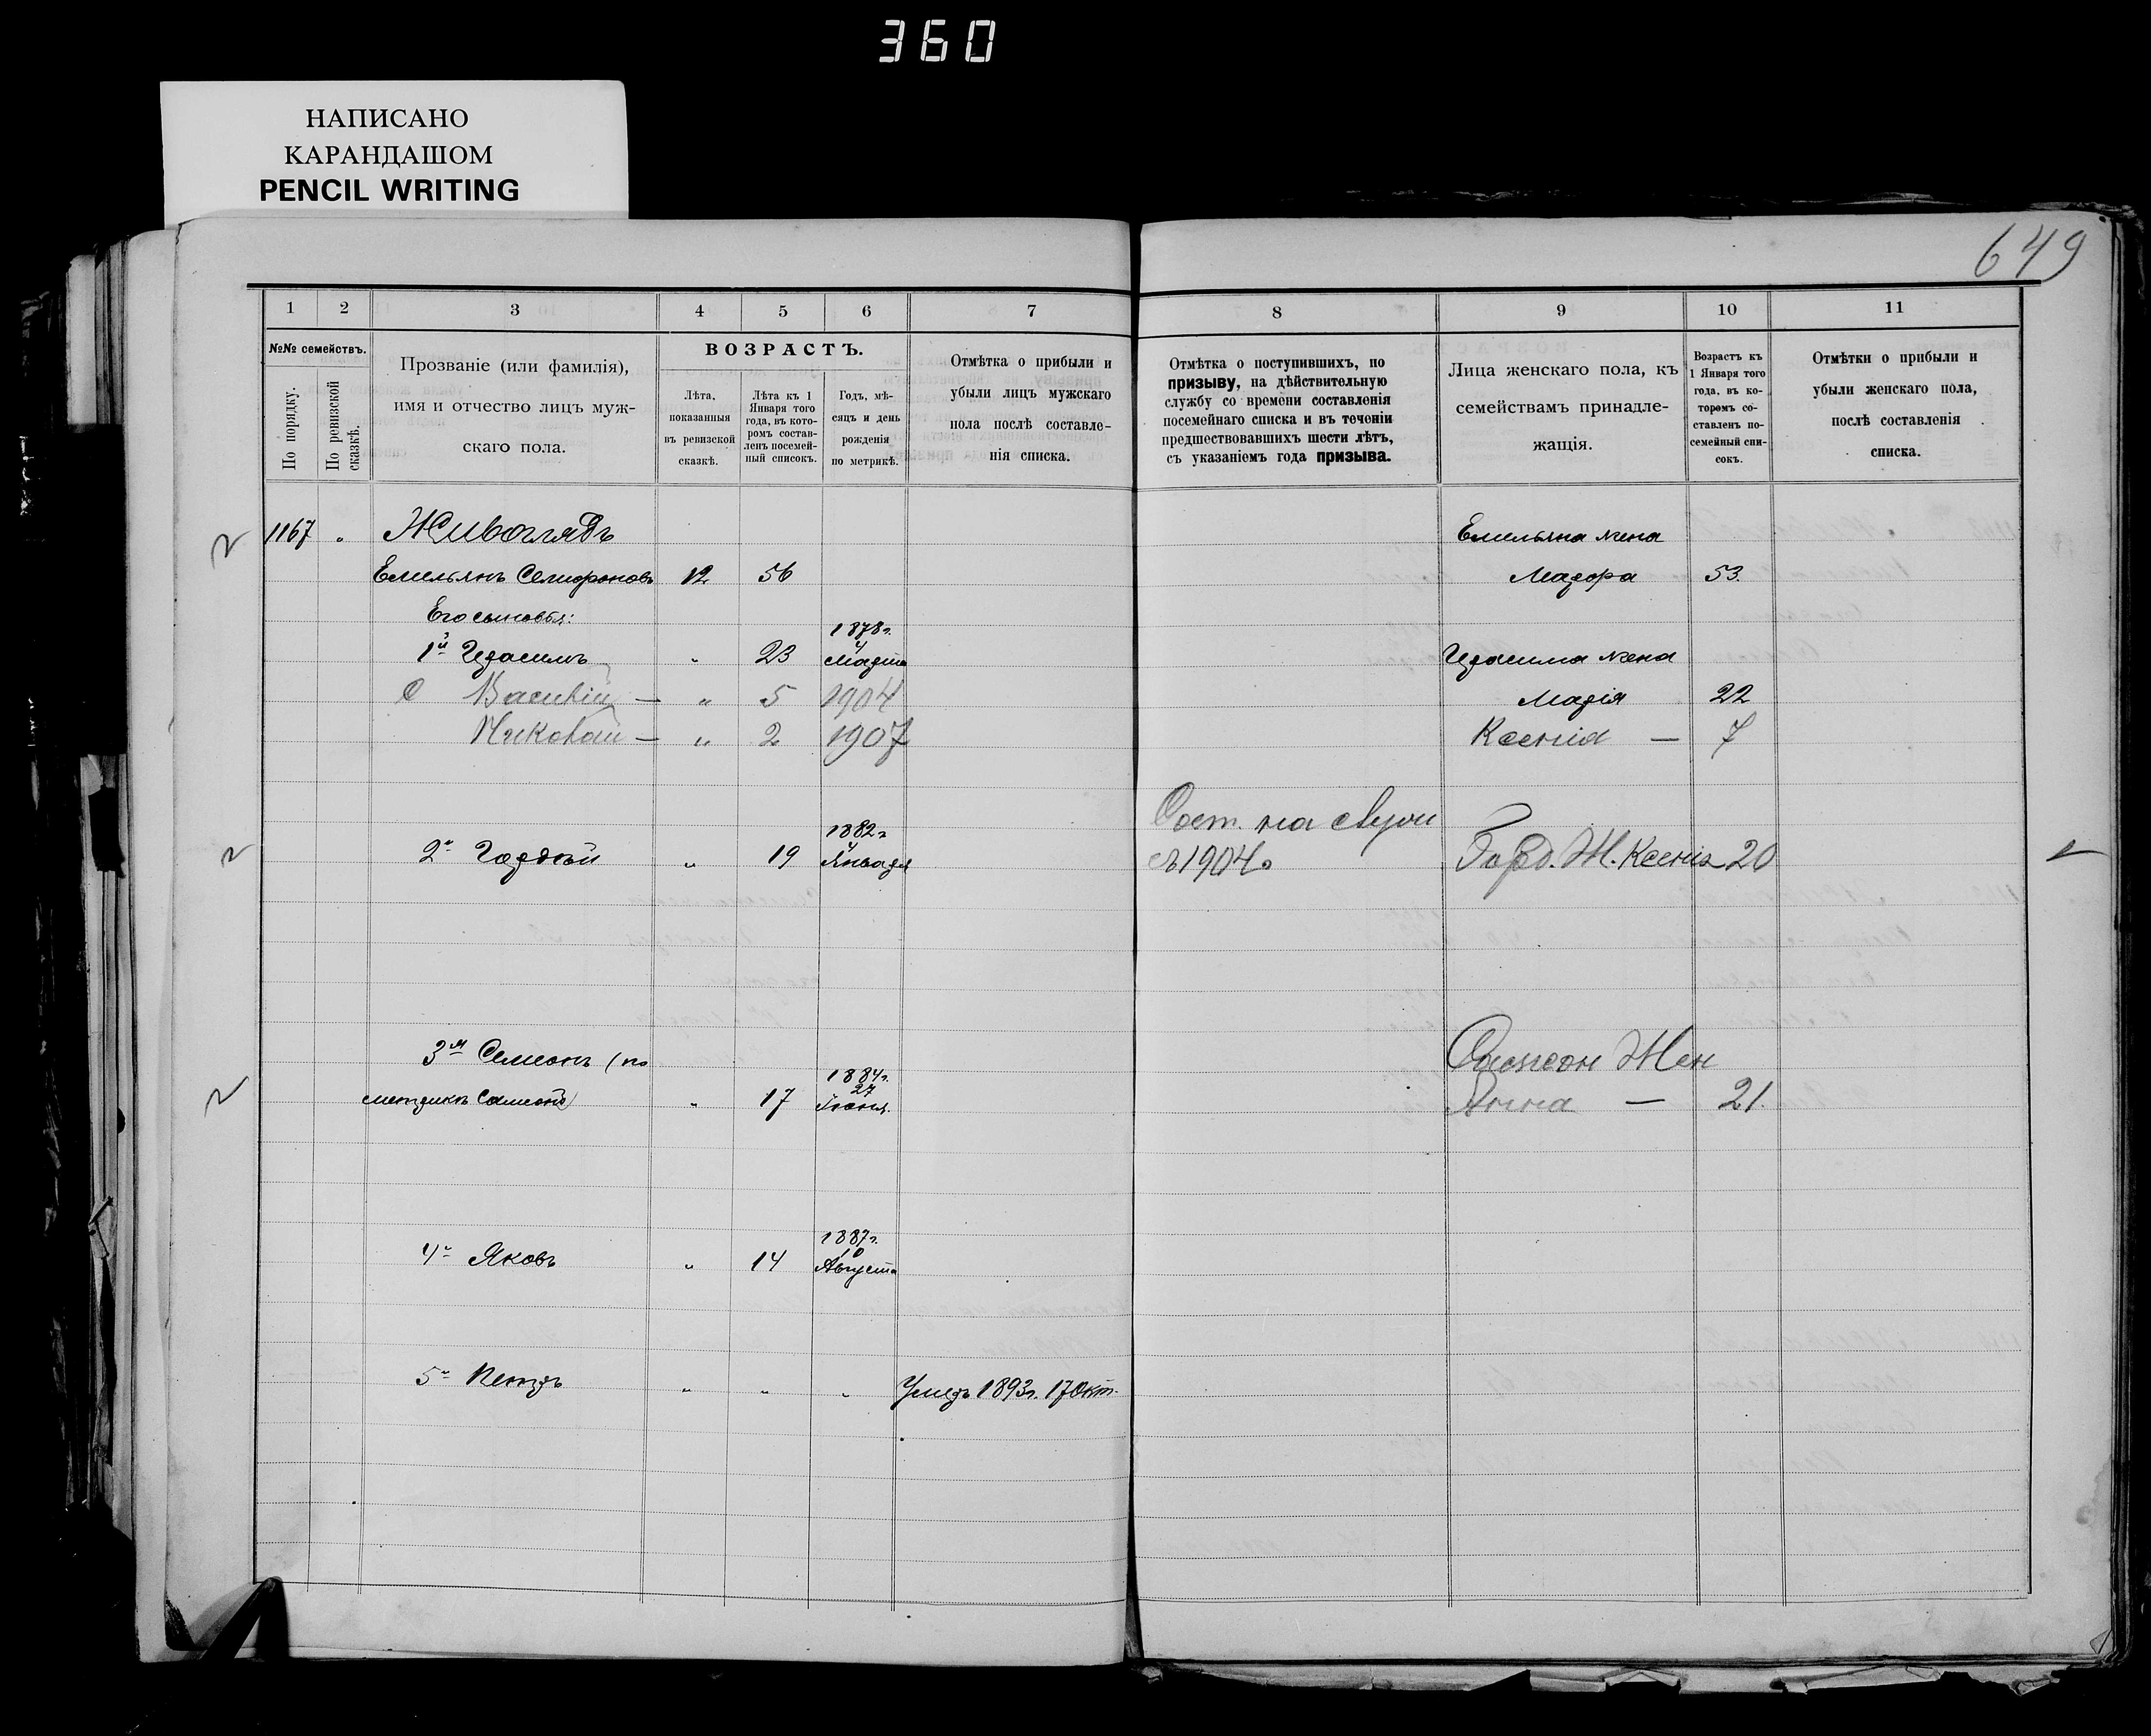 360
НАПИСАНО
КАРАНДАШОМ
PENCIL WRITING
649
1 2 3 4 5 6 7 8 9 10 11
№№ семействъ.
По порядку.
По ревизской сказкѣ.
Прозваніе (или фамилія),
имя и отчество лицъ муж-
скаго пола.
ВОЗРАСТЪ.
Лѣта,
показанныя
въ ревизской
сказкѣ.
Лѣта къ 1
Января того
года, въ кото-
ромъ состав-
ленъ посемей-
ный списокъ.
Годъ, мѣ-
сяцъ и день
рожденія
по метрикѣ.
Отмѣтка о прибыли и
убыли лицъ мужскаго
пола послѣ составле-
нія списка.
Отмѣтка о поступившихъ, по
призыву, на дѣйствительную
службу со времени составленія
посемейнаго списка и въ теченіи
предшествовавшихъ шести лѣтъ,
съ указаніемъ года призыва.
Лица женскаго пола, къ
семействамъ принадле-
жащія.
Возрастъ къ
1 Января того
года, въ ко-
торомъ со-
ставленъ по-
семейный спи-
сокъ.
Отмѣтки о прибыли и
убыли женскаго пола,
послѣ составленія
списка.
1167 „ Живоглядъ Емельяна жена
Емельянъ 12 56 Мавра 53.
Его сыновья:
1878 г.
4
1й Герасимъ „ 23 Марта Герасима жена
Василій — „ 5 1904 Марія 22
Николай — „ 2 1907 Ксенія — 7
Сост. на служ
1882 г.
2й Гордѣй „ 19 Января съ 1904 г Горд. Ж. Ксенія 20
3й Семионъ (по Самсон Жен
1884 г.
27
метрикѣ Самсонъ) „ 17 Іюня. Анна — 21.
1887 г.
10
4й Яковъ „ 14 Августа
5й Петръ „ „ „ Умеръ 1893 г. 17 Окт.